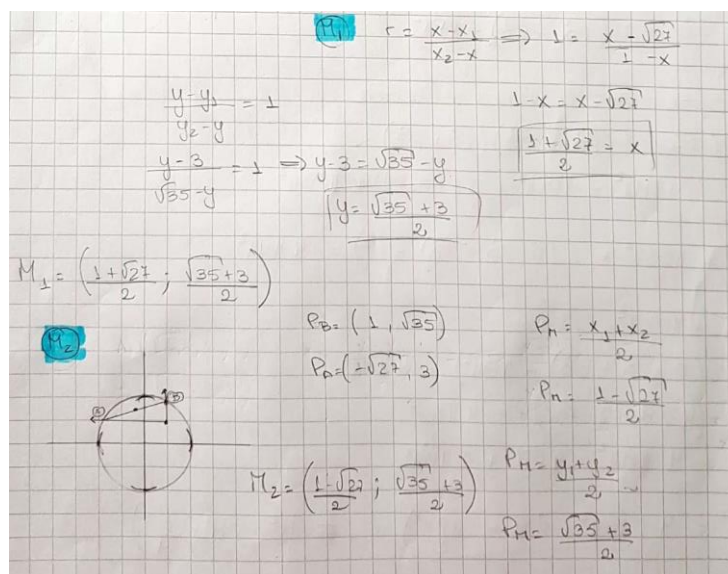 M₁ r = (x - x₁)/(x₂ - x) ⟹ 1 = (x - √27)/(1 - x)
(y - y₁)/(y₂ - y) = 1
1 - x = x - √27
(y - 3)/(√35 - y) = 1 ⟹ y - 3 = √35 - y
(1 + √27)/2 = x
y = (√35 + 3)/2
M₁ = ((1 + √27)/2 ; (√35 + 3)/2)
M₂
P_B = (1, √35)
P_A = (-√27, 3)
P_M = (x₁ + x₂)/2
P_M = (1 - √27)/2
A B
M₂ = ((1 - √27)/2 ; (√35 + 3)/2)
P_M = (y₁ + y₂)/2
P_M = (√35 + 3)/2